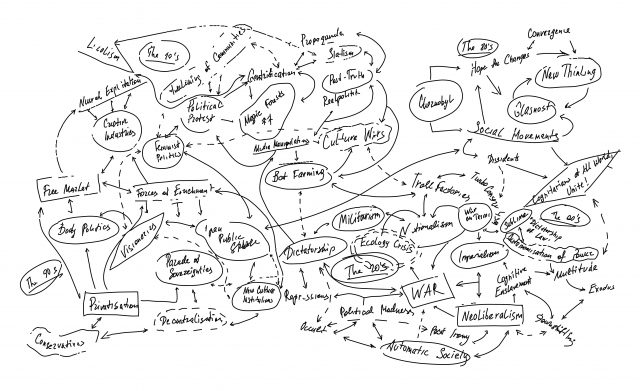 Localism
The 10's
Communities
Propaganda
Statism
Convergence
The 80's
Hope for Changes
New Thinking
Gentrification
Post-Truth
Realpolitik
Neural Exploitation
Political
Protest
Chernobyl
Glasnost
Creative
Industries
Feminist
Politics
Media Manipulation
Culture Wars
Social Movements
Dissidents
Bot Farming
Troll Factories
Free Market
Forces of Enrichment
Cognitarians of All Worlds
Unite!
The 00's
Body Politics
Visionaries
New
Public
Sphere
Militarism
Nationalism
War
on Terror
Dictatorship
of Law
Dictatorship
Ecology Crisis
The 20's
Imperialism
The 90's
Parade of
Sovereignties
New Culture
Institutions
Repressions
WAR
Cognitive
Enslavement
Multitude
Exodus
Privatisation
Decentralisation
Political Madness
NeoLiberalism
Conservatives
Occult
Post Irony
Automatic Society